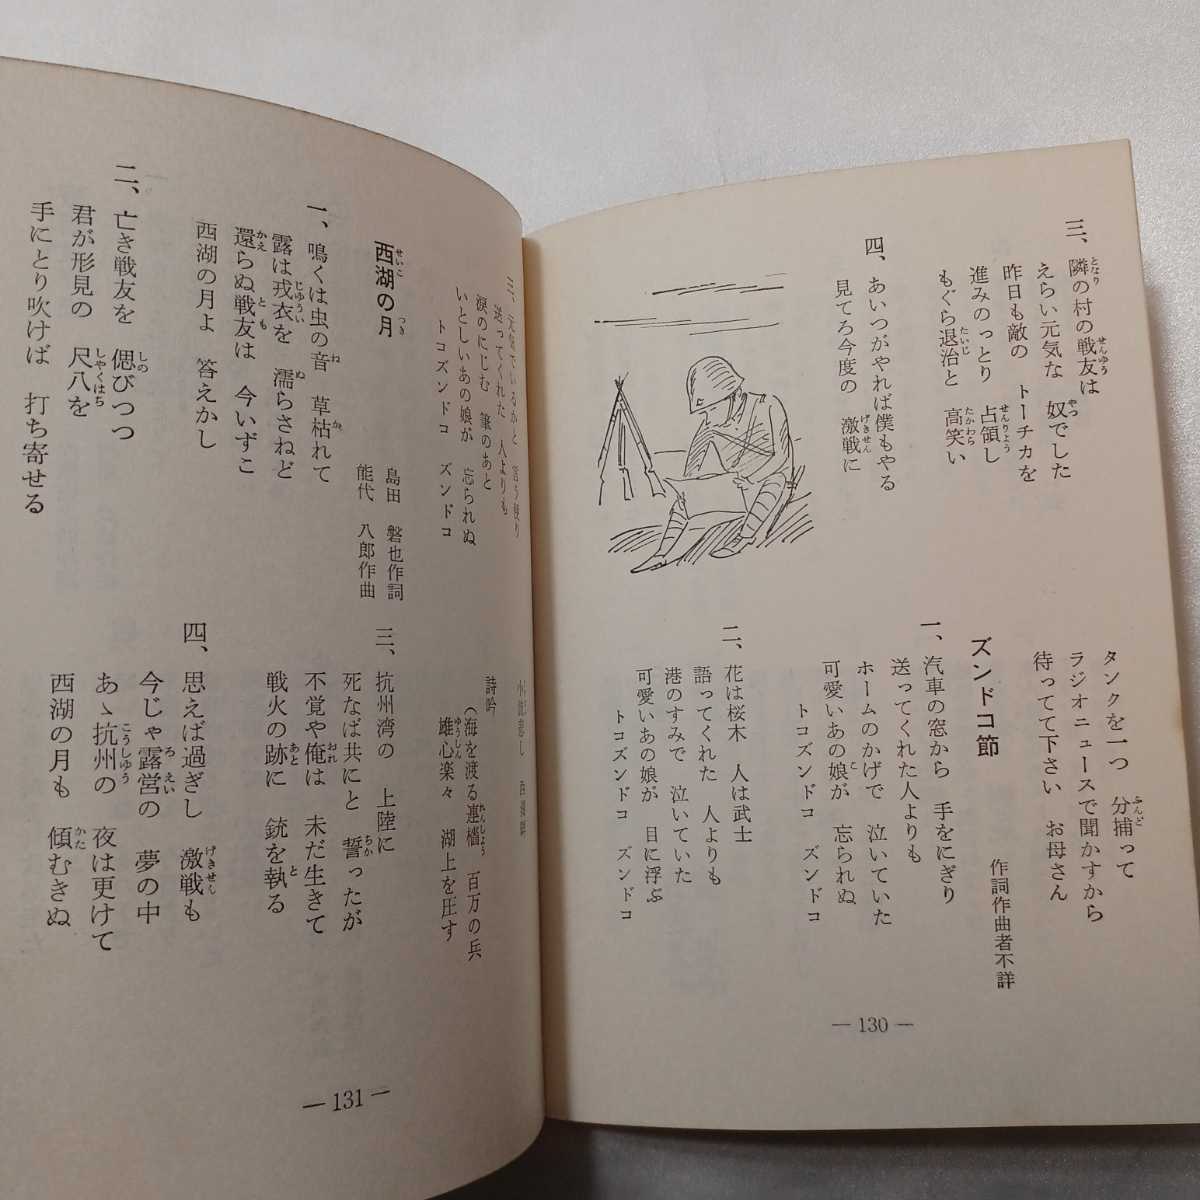 三、隣の村の戦友は
えらい元気な 奴でした
昨日も敵の トーチカを
進みのっとり 占領し
もぐら退治と 高笑い
四、あいつがやれば僕もやる
見てろ今度の 激戦に
タンクを一つ 分捕って
ラジオニュースで聞かすから
待ってて下さい お母さん
ズンドコ節
作詞作曲者不詳
一、汽車の窓から 手をにぎり
送ってくれた人よりも
ホームのかげで 泣いていた
可愛いあの娘が 忘られぬ
トコズンドコ ズンドコ
二、花は桜木 人は武士
語ってくれた 人よりも
港のすみで 泣いていた
可愛いあの娘が 目に浮ぶ
トコズンドコ ズンドコ
— 130 —
三、元気でいるかと 言う便り
送ってくれた 人よりも
涙のにじむ 筆のあと
いとしいあの娘が 忘られぬ
トコズンドコ ズンドコ
西湖の月
島田 磐也作詞
能代 八郎作曲
一、鳴くは虫の音 草枯れて
露は戎衣を 濡らさねど
還らぬ戦友は 今いずこ
西湖の月よ 答えかし
二、亡き戦友を 偲びつつ
君が形見の 尺八を
手にとり吹けば 打ち寄せる
詩吟
(海を渡る連檣 百万の兵
雄心楽々 湖上を圧す
三、抗州湾の 上陸に
死なば共にと 誓ったが
不覚や俺は 未だ生きて
戦火の跡に 銃を執る
四、思えば過ぎし 激戦も
今じゃ露営の 夢の中
あゝ抗州の 夜は更けて
西湖の月も 傾むきぬ
— 131 —